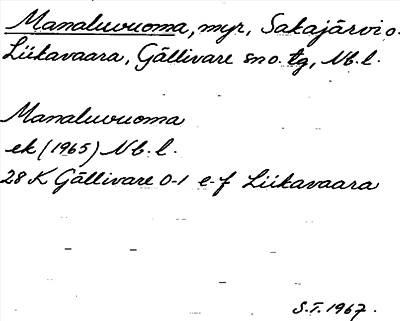 Manaluvuoma, myr, Sakajärvi o.
Liikavaara, Gällivare sn o. tg, Nb. l.
Manaluvuoma
ek (1965) Nb. l.
28 K Gällivare 0-1 e-f Liikavaara
S.T. 1967.